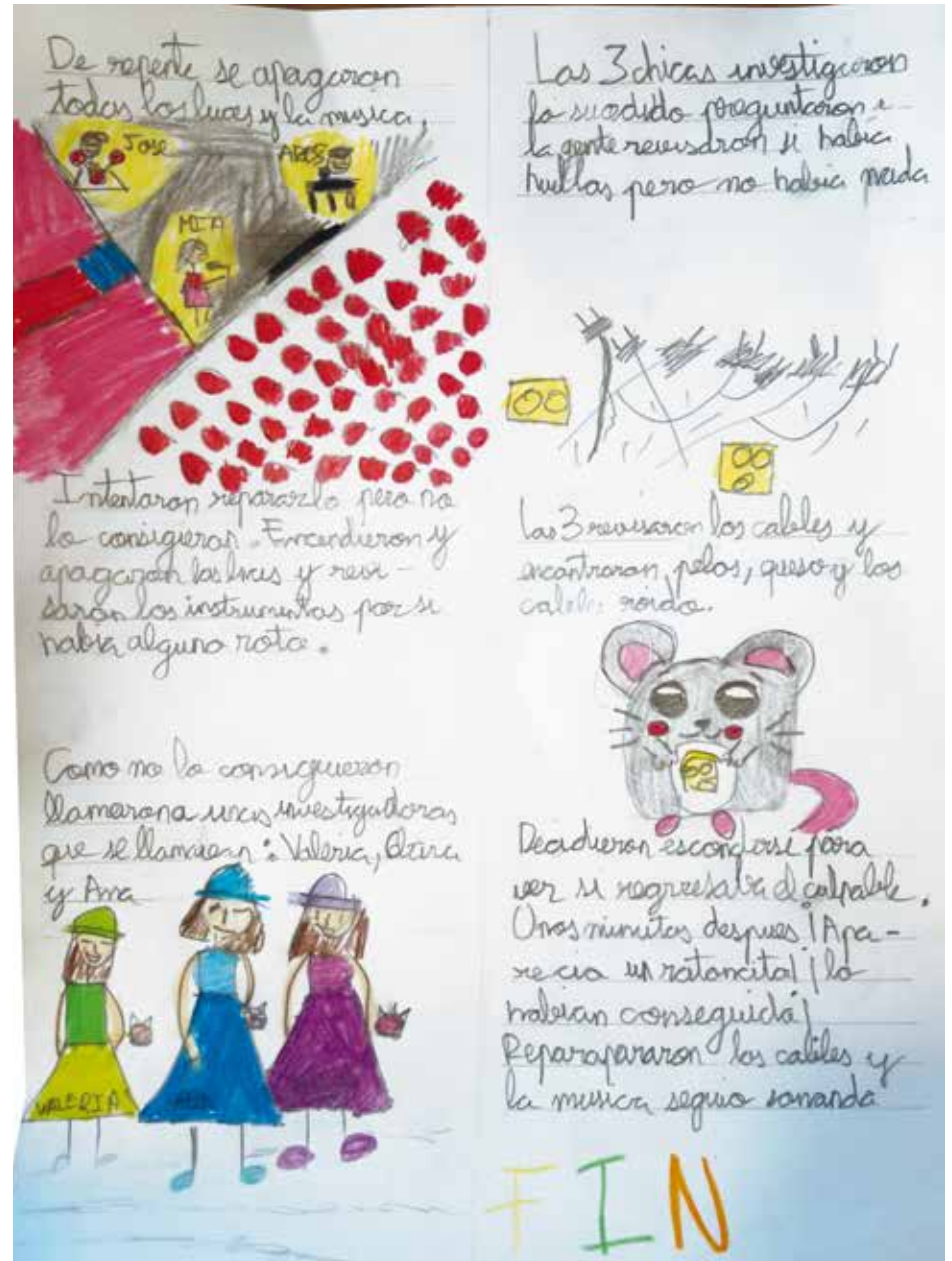 De repente se apagaron
todas las luces y la musica.
Jose
MIA
Intentaron repararlo pero no
lo consigieron. Encendieron y
apagaron las luces y revi-
saron los instrumentos por si
habia alguno roto.
Como no lo consiguieron
llamaron a unas investigadoras
que se llamaban: Valeria,
y Ana
VALERIA
Las 3 chicas investigaron
lo sucedido preguntaron a
la gente revisaron si habia
huellas pero no habia nada
Las 3 revisaron los cables y
encontraron pelos, queso y los
cables roido.
Decidieron esconderse para
ver si regresaba el culpable.
Unos minutos despues ¡Apa-
recio un ratoncito! ¡lo
habian conseguido!
Reparapararon los cables y
la musica seguio sonando
FIN